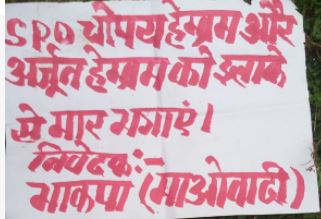 SPO चोपय हेम्ब्रम और
अर्जुन हेम्ब्रम को इलाके
से मार भगाएं।
निवेदक:-
भाकपा (माओवादी)